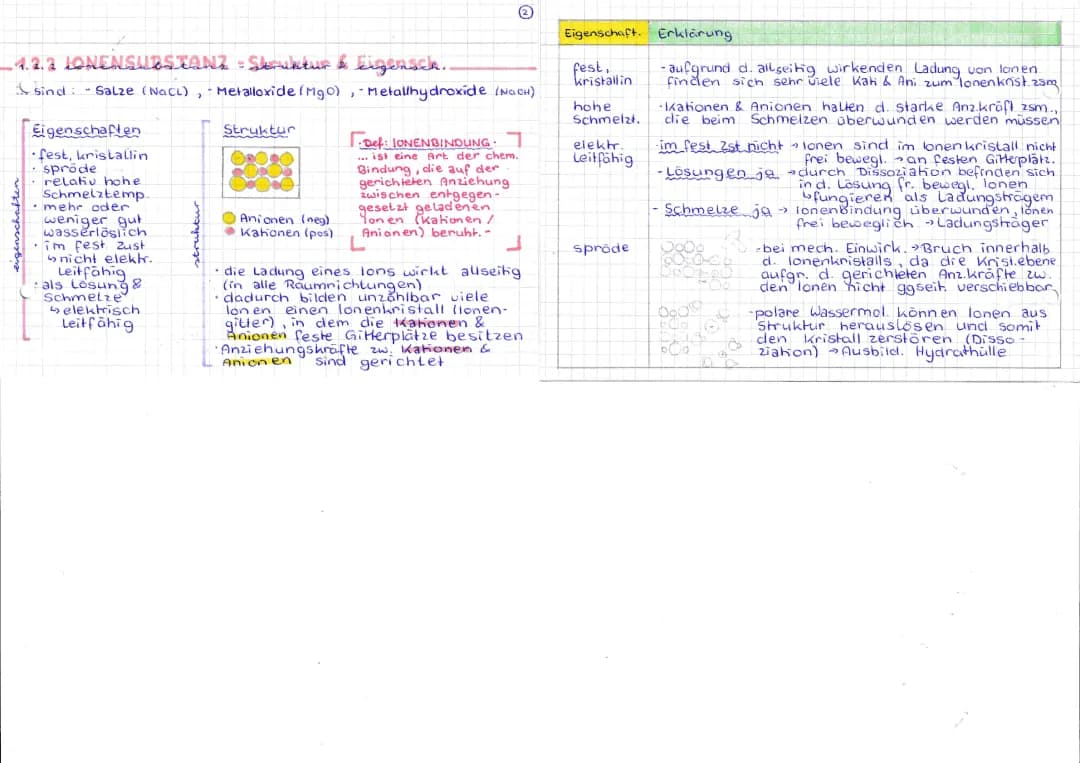 ②
1.2.2 IONENSUBSTANZ = Struktur & Eigensch.
↳ sind : - Salze (NaCl) , - Metalloxide (MgO) , - Metallhydroxide (NaOH)
eigenschaften
Eigenschaften
· fest, kristallin
· spröde
· relativ hohe
Schmelztemp.
· mehr oder
weniger gut
wasserlöslich
· im fest. Zust
↳ nicht elektr.
Leitfähig
· als Lösung &
Schmelze
↳ elektrisch
Leitfähig
struktur
Struktur
Anionen (neg)
Kationen (pos)
· Def: IONENBINDUNG ·
... ist eine Art der chem.
Bindung, die auf der
gerichteten Anziehung
zwischen entgegen-
gesetzt geladenen
Ionen (Kationen /
Anionen) beruht. -
· die Ladung eines Ions wirkt allseitig
(in alle Raumrichtungen)
· dadurch bilden unzählbar viele
Ionen einen Ionenkristall (Ionen-
gitter), in dem die Kationen &
Anionen feste Gitterplätze besitzen
· Anziehungskräfte zw. Kationen &
Anionen sind gerichtet
Eigenschaft. Erklärung
fest,
kristallin
- aufgrund d. allseitig wirkenden Ladung von Ionen
finden sich sehr viele Kat. & Ani. zum Ionenkrist. zsm
hohe
Schmelzt.
· Kationen & Anionen halten d. starke Anz.kräft zsm.,
die beim Schmelzen überwunden werden müssen
elektr.
Leitfähig
- im fest Zst nicht → Ionen sind im Ionenkristall nicht
frei bewegl. → an festen Gitterplätz.
- Lösungen ja → durch Dissoziation befinden sich
in d. Lösung fr. bewegl. Ionen
↳ fungieren als Ladungsträgern
- Schmelze ja → Ionenbindung überwunden, Ionen
frei beweglich → Ladungsträger
spröde
- bei mech. Einwirk. → Bruch innerhalb
d. Ionenkristalls, da die Krist.ebene
aufgr. d. gerichteten Anz.kräfte zw.
den Ionen nicht ggseit. verschiebbar
- polare Wassermol. können Ionen aus
Struktur herauslösen und somit
den Kristall zerstören (Disso-
ziation) → Ausbild. Hydrathülle